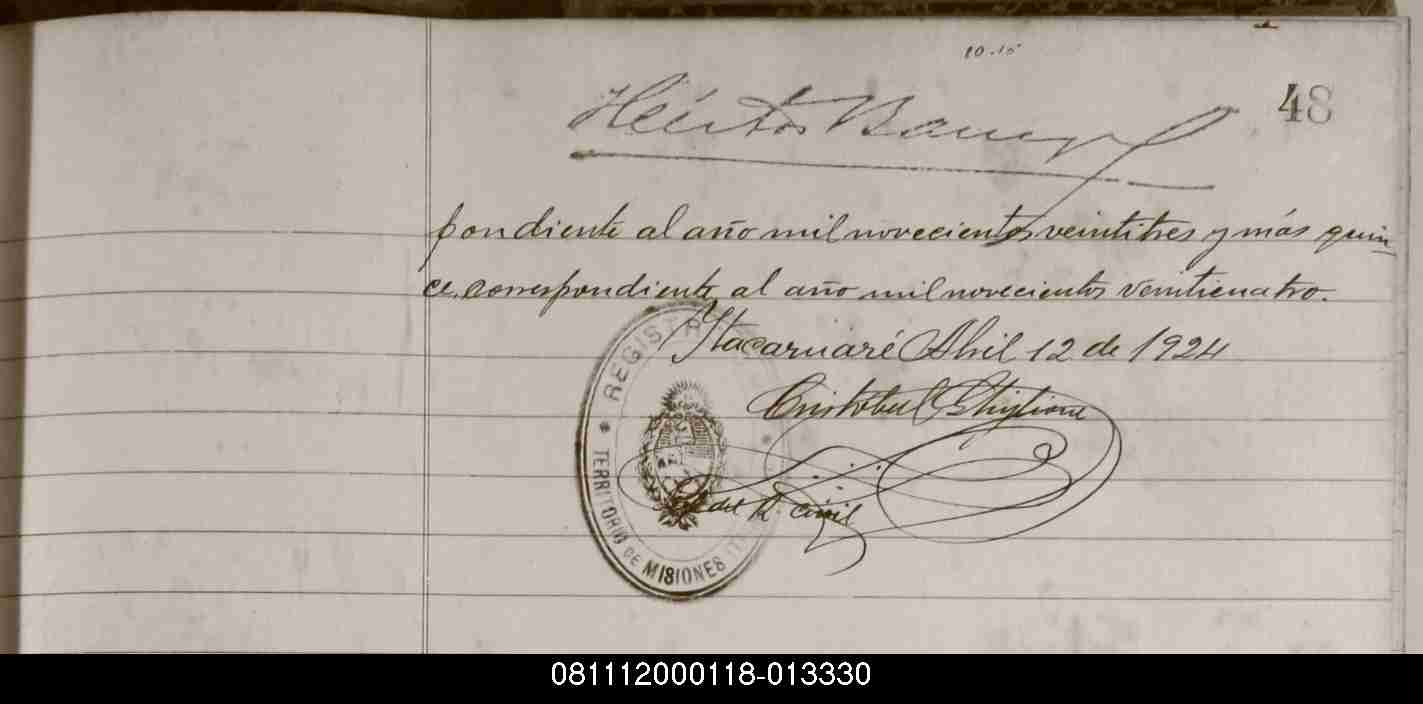 48
Héctor
pondiente al año mil novecientos veintitres y más quin-
ce, correspondiente al año mil novecientos veinticuatro.
Itacaruaré Abril 12 de 1924
Cristóbal Stiglione
del R. civil
REGIST
* TERRITORIO DE MISIONES *
081112000118-013330